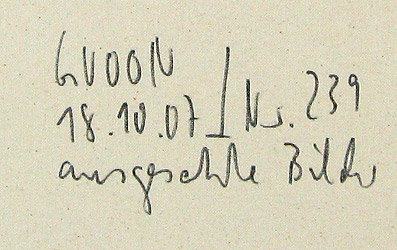 GVOON
18.10.07 | Nr. 239
ausgesuchte Bilder